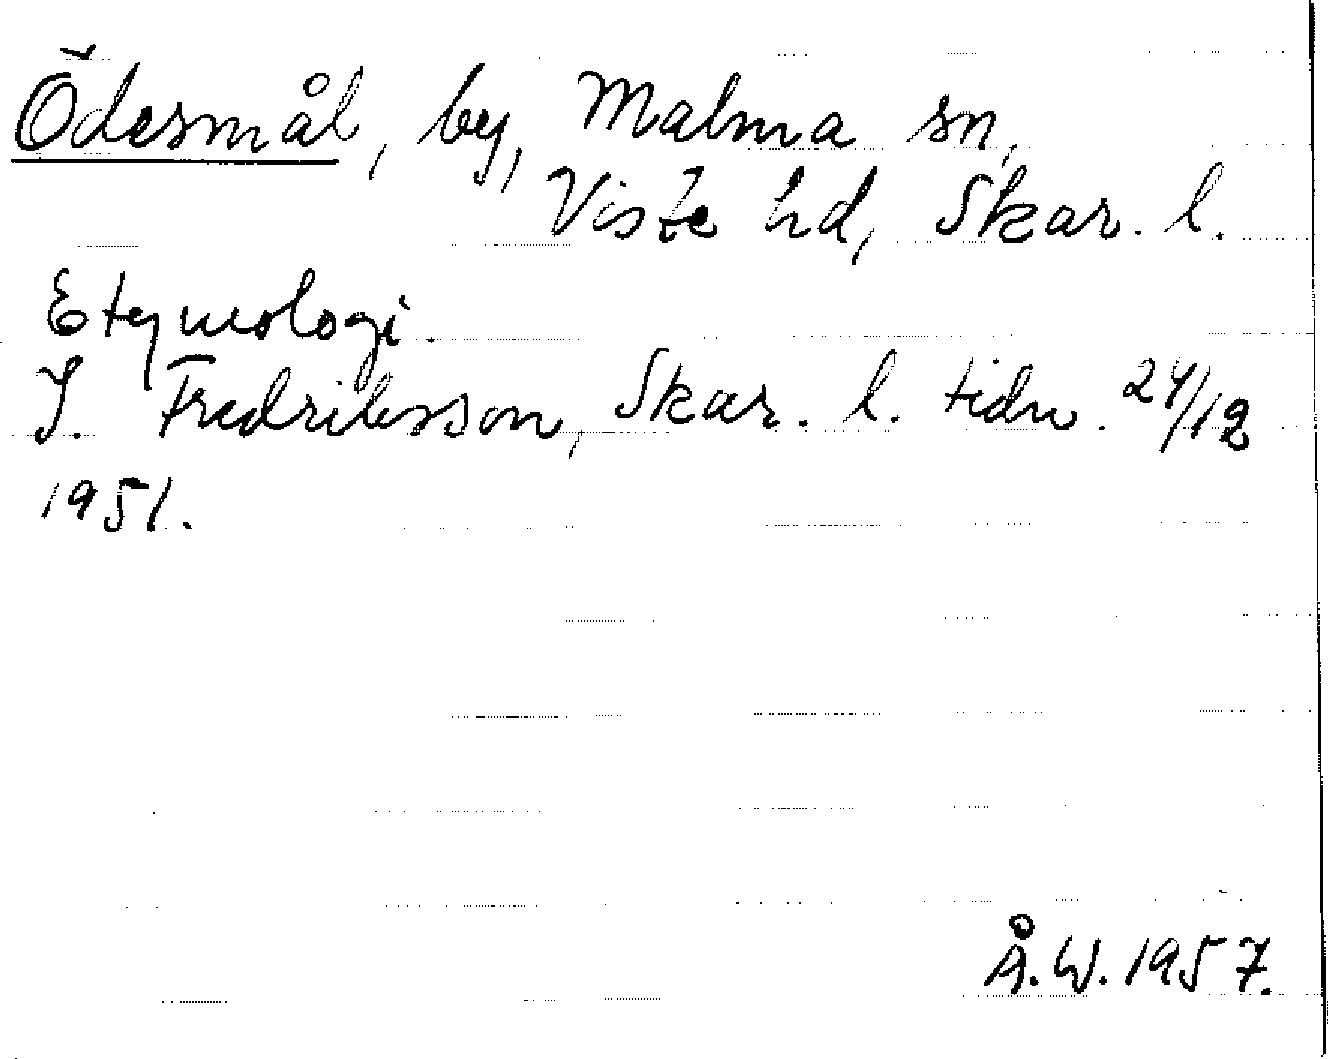 Ödesmål, by, Malma sn,
Viste hd, Skar. l.
Etymologi.
I. Fredriksson, Skar. l. tidn. 24/12
1951.
Å.W. 1957.